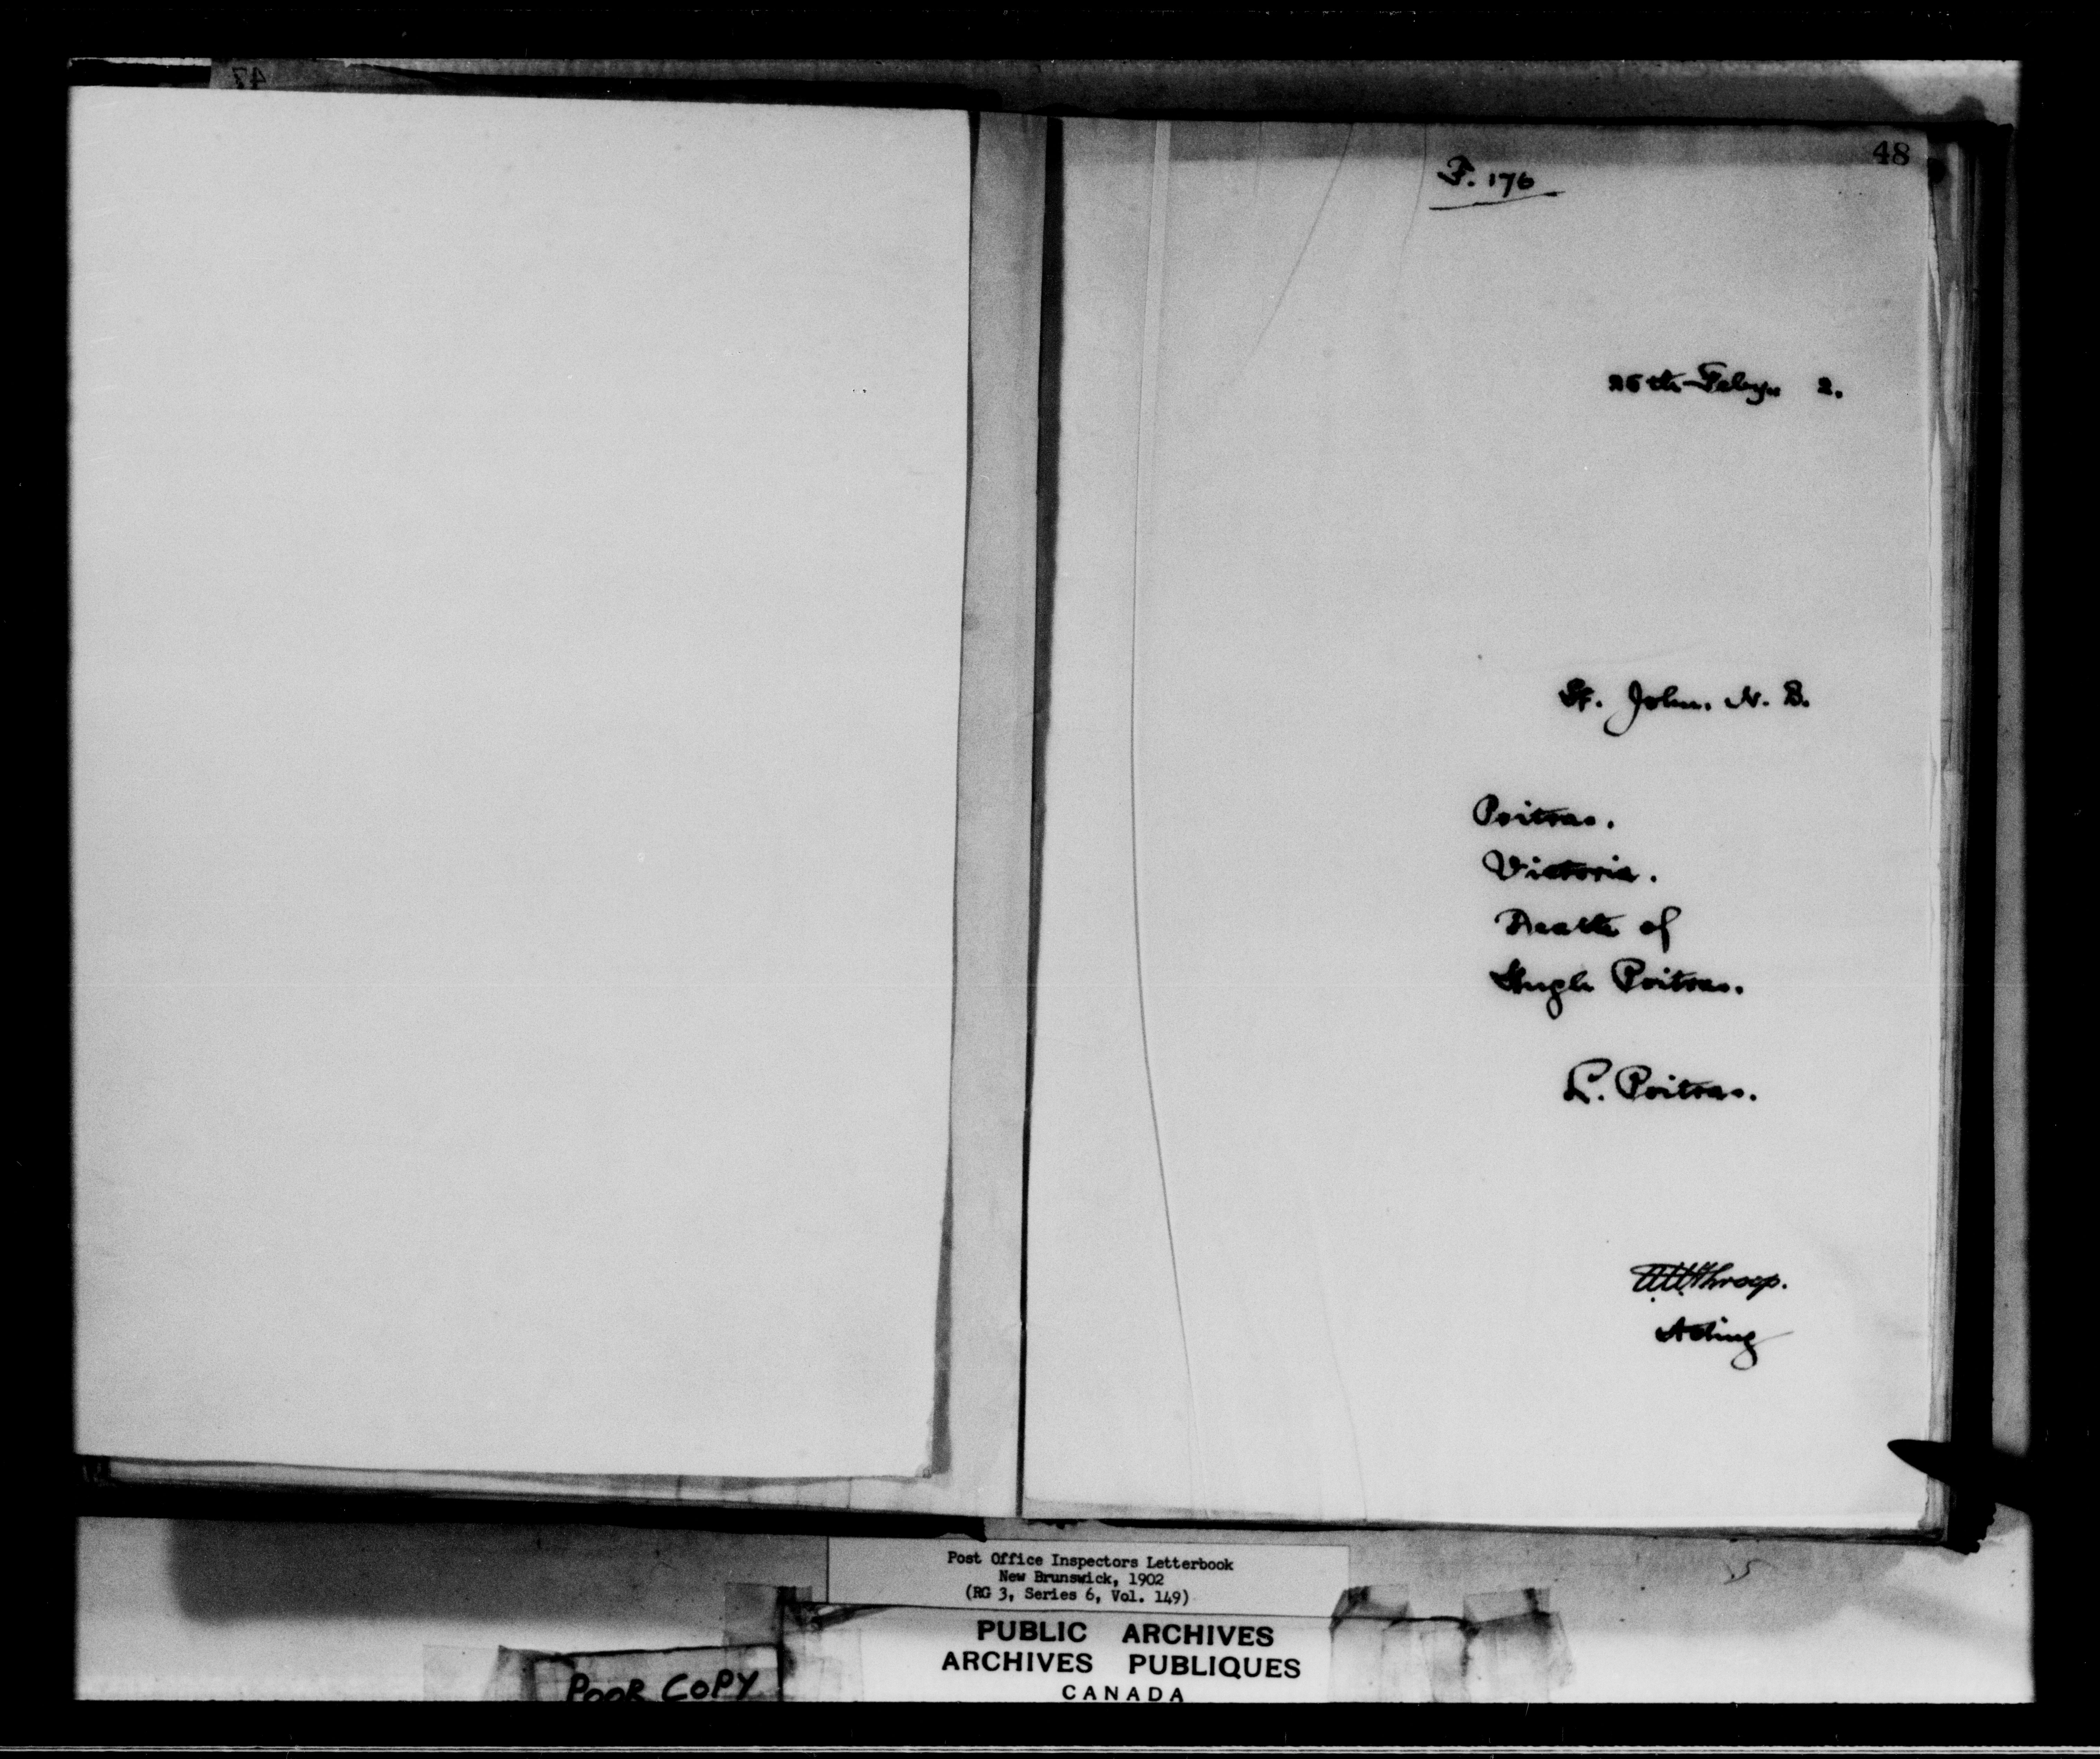 47
48
F. 176
25th Feby. 2.
St. John. N. B.
Poitras.
Victoria.
Death of
Hugh Poitras.
L. Poitras.
Throop.
Acting
Post Office Inspectors Letterbook
New Brunswick, 1902
(RG 3, Series 6, Vol. 149)
PUBLIC ARCHIVES
ARCHIVES PUBLIQUES
CANADA
POOR COPY